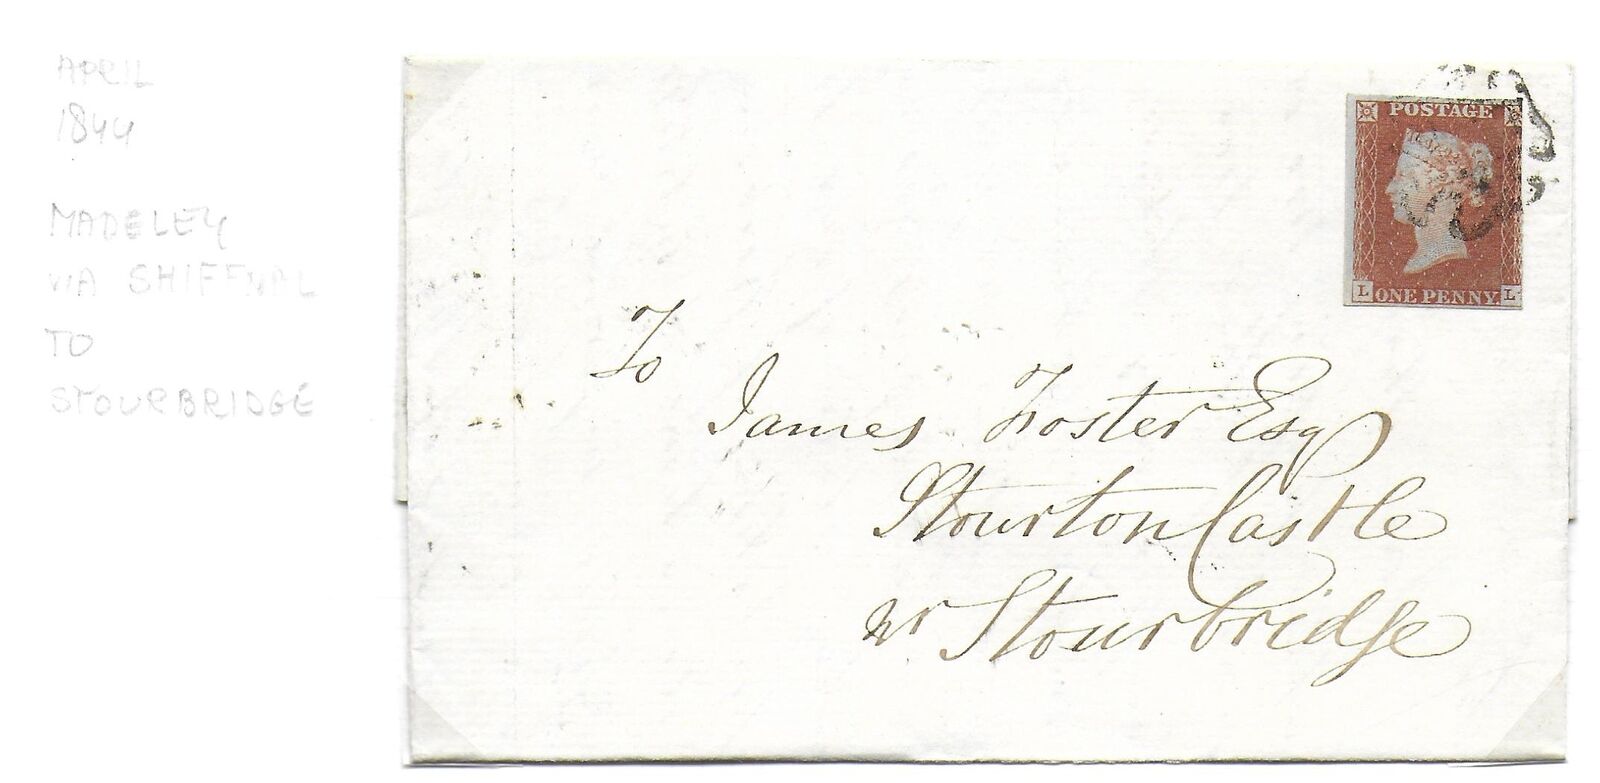 APRIL
1844
MADELEY
VIA SHIFFNAL
TO
STOURBRIDGE
POSTAGE
L ONE PENNY. L
To
James Foster Esq
Stourton Castle
nr Stourbridge